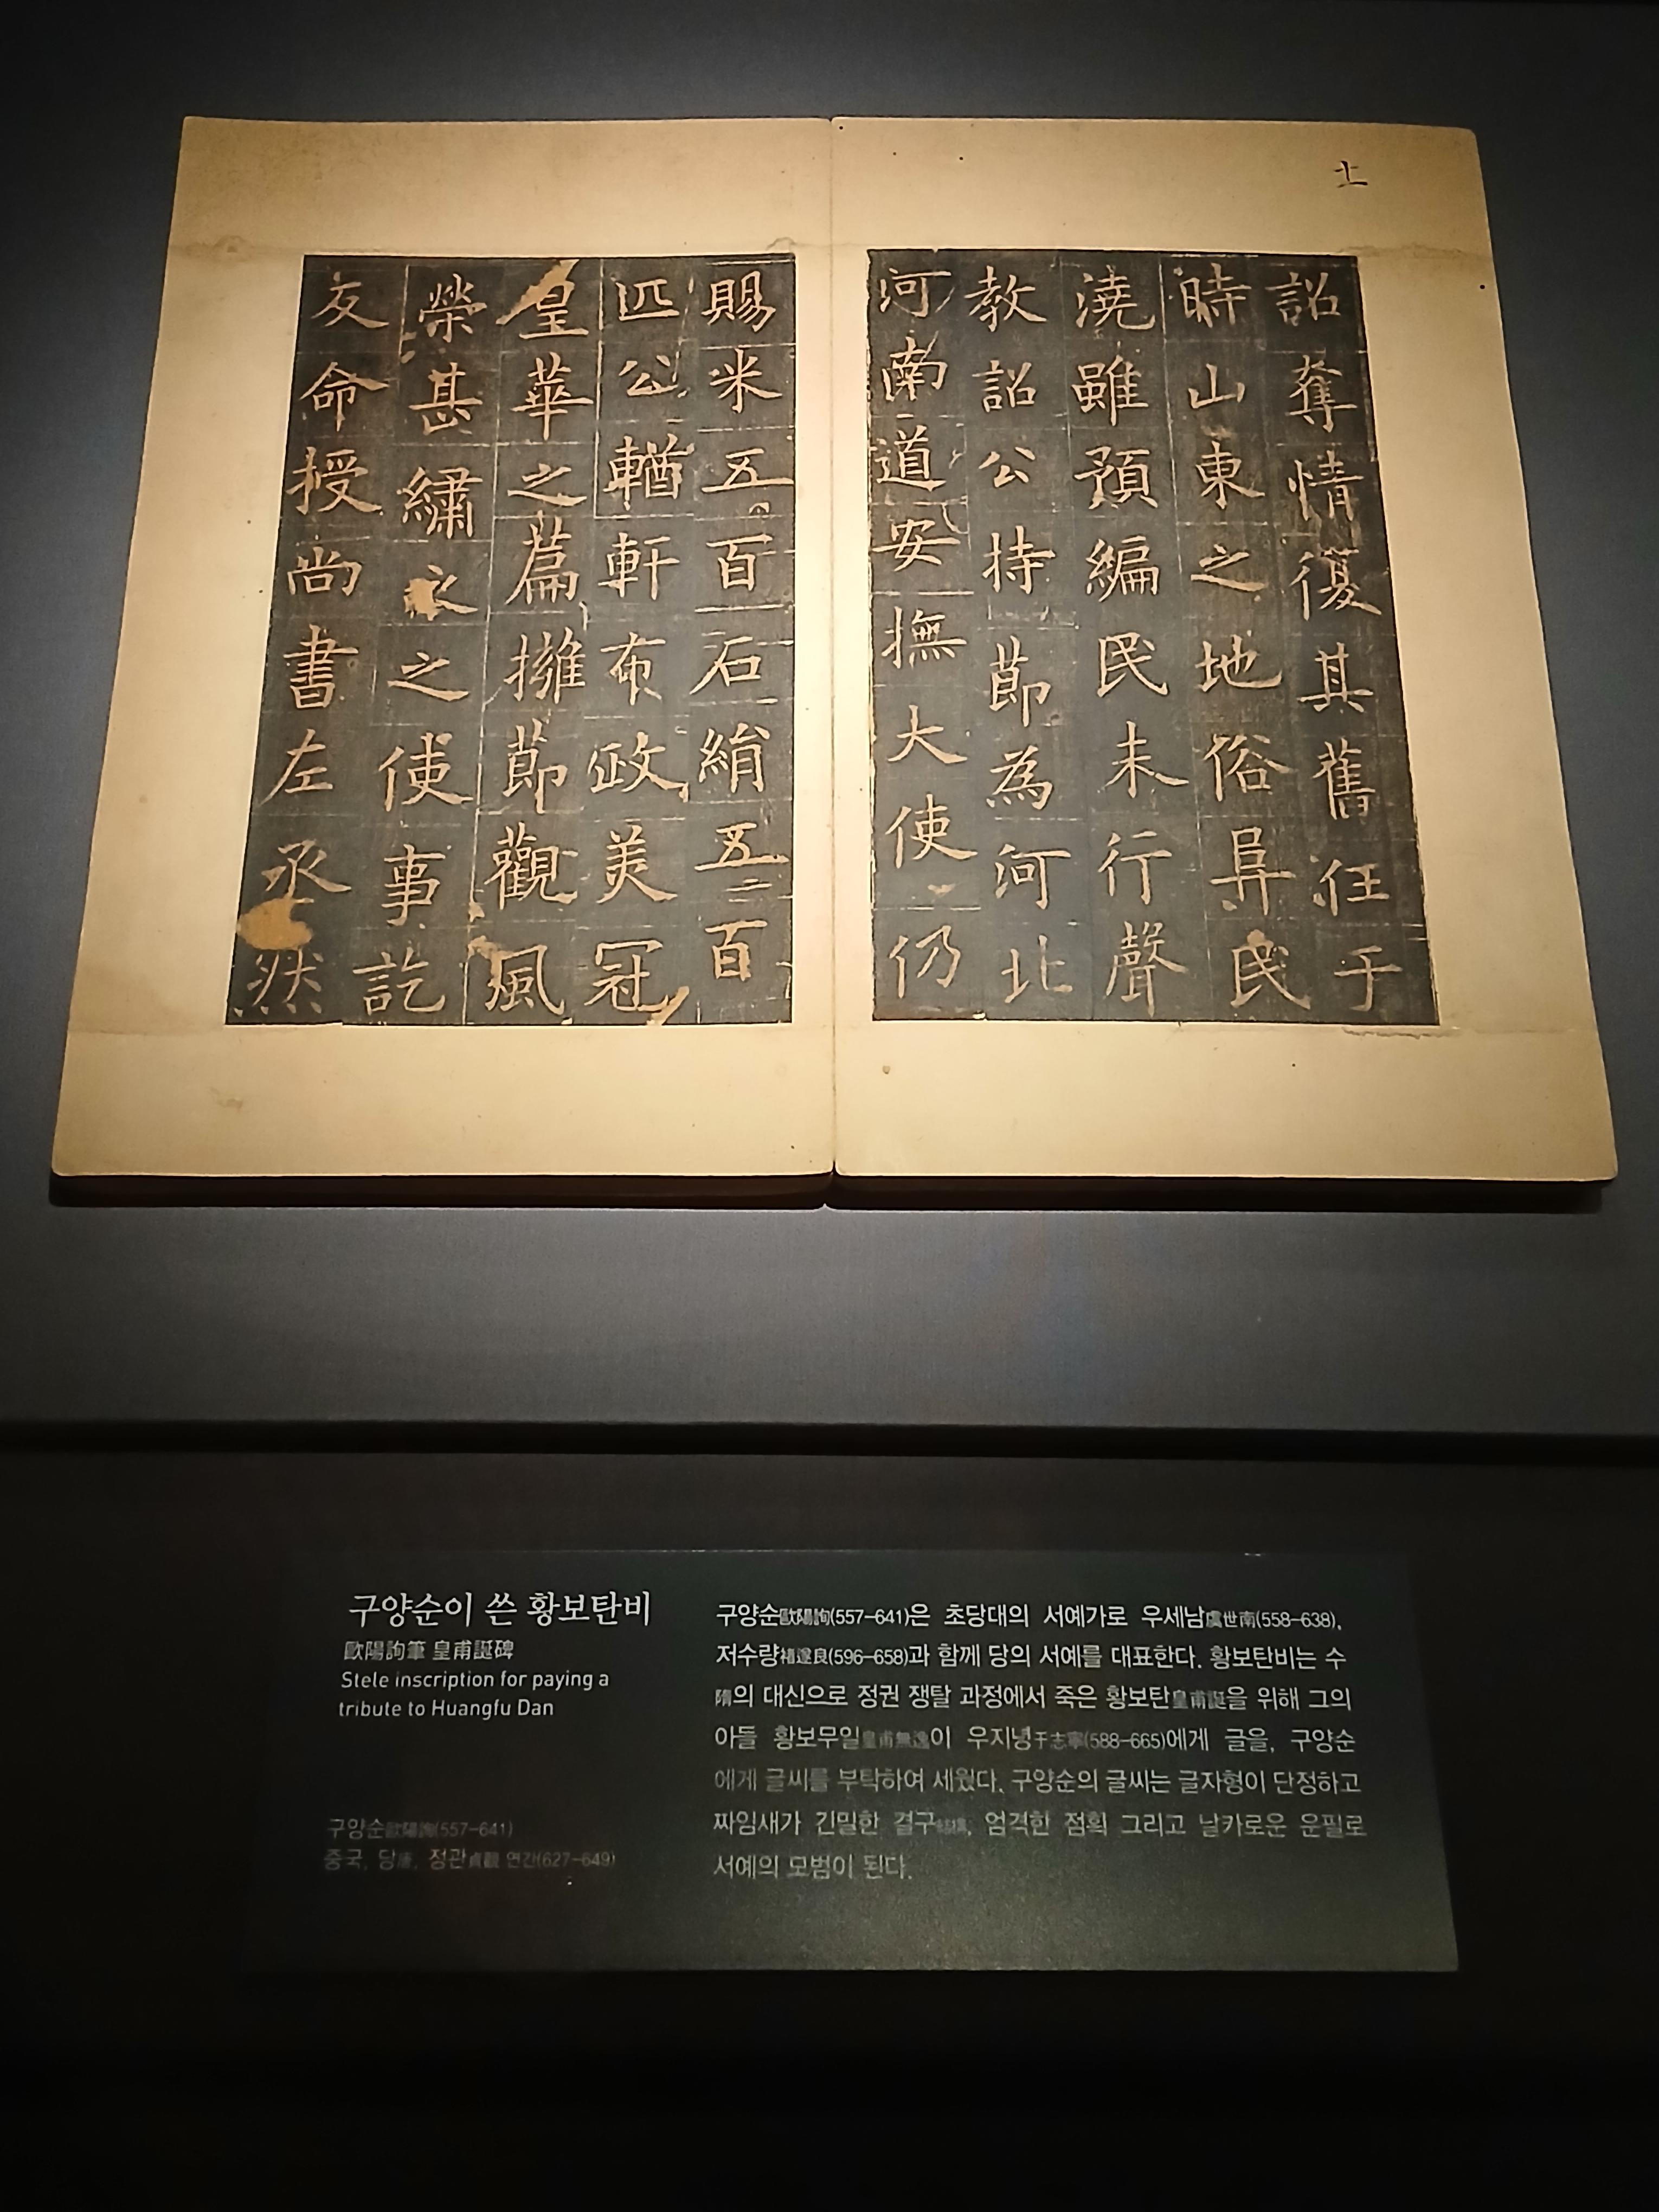 十一
詔奪情復其舊任于
時山東之地俗阜民
澆雖預編民未行聲
教詔公持節為河北
河南道安撫大使仍
賜米五百石絹五百
匹公輶軒布政美冠
皇華之篇擁節觀風
榮甚繡衣之使事訖
反命授尚書左丞然
구양순이 쓴 황보탄비
歐陽詢筆 皇甫誕碑
Stele inscription for paying a
tribute to Huangfu Dan
구양순歐陽詢(557-641)
중국, 당唐, 정관貞觀 연간(627-649)
구양순歐陽詢(557-641)은 초당대의 서예가로 우세남虞世南(558-638),
저수량褚遂良(596-658)과 함께 당의 서예를 대표한다. 황보탄비는 수
隋의 대신으로 정권 쟁탈 과정에서 죽은 황보탄皇甫誕을 위해 그의
아들 황보무일皇甫無逸이 우지녕于志寧(588-665)에게 글을, 구양순
에게 글씨를 부탁하여 세웠다. 구양순의 글씨는 글자형이 단정하고
짜임새가 긴밀한 결구結構, 엄격한 점획 그리고 날카로운 운필로
서예의 모범이 된다.